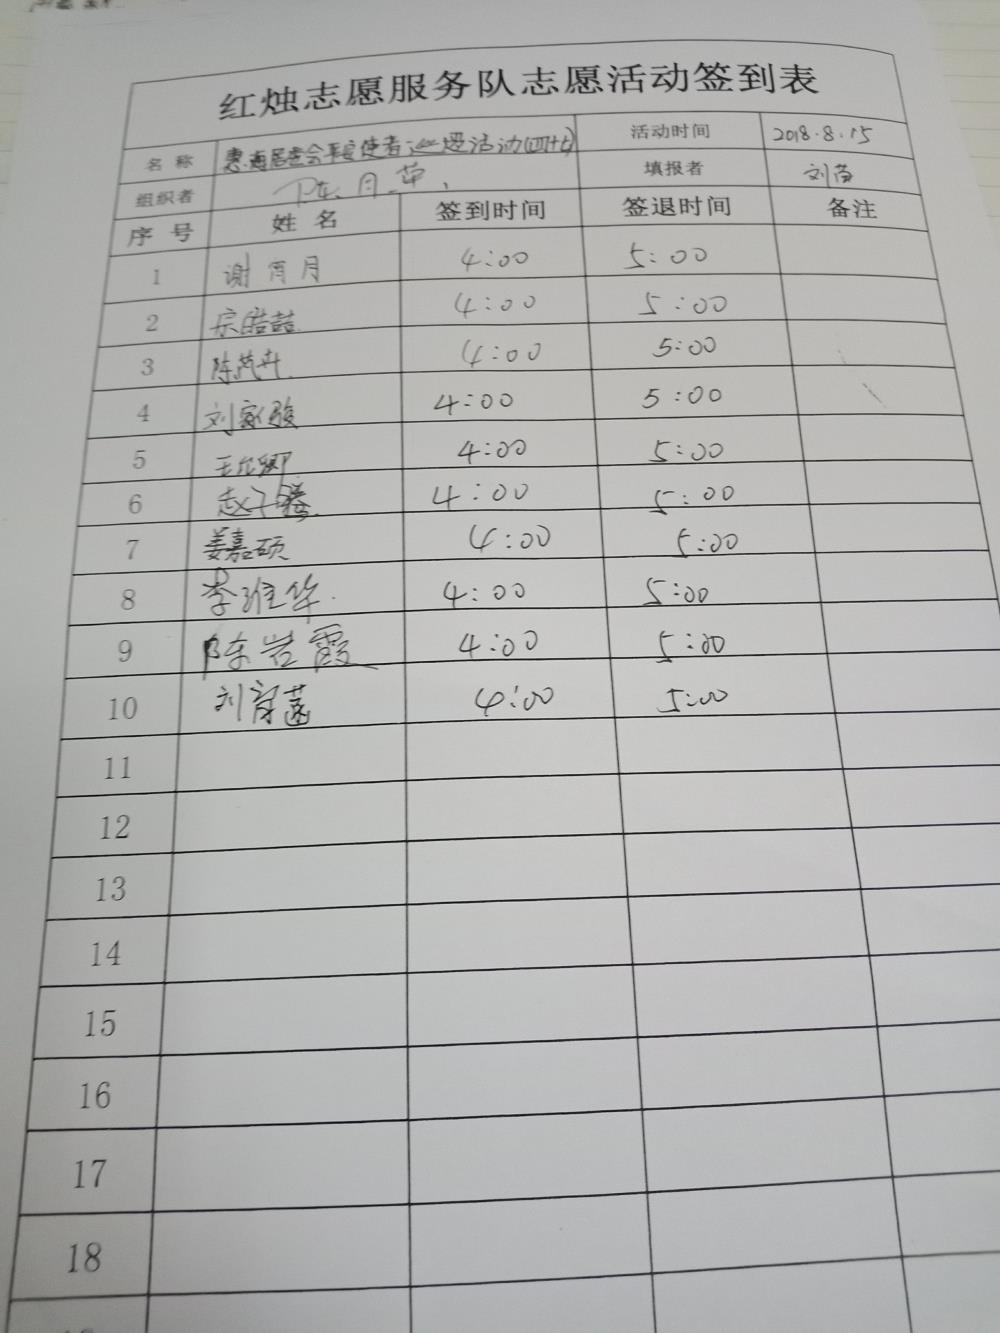 红烛志愿服务队志愿活动签到表
名称 惠海居委会平安使者巡逻活动(四十七) 活动时间 2018.8.15
组织者 陈月華 填报者 刘苗
序号 姓名 签到时间 签退时间 备注
1 谢宵月 4:00 5:00
2 宗皓喆 4:00 5:00
3 陈芃卉 4:00 5:00
4 刘家骏 4:00 5:00
5 4:00 5:00
6 赵子腾 4:00 5:00
7 姜嘉硕 4:00 5:00
8 李维华 4:00 5:00
9 陈岩霞 4:00 5:00
10 刘 4:00 5:00
11
12
13
14
15
16
17
18